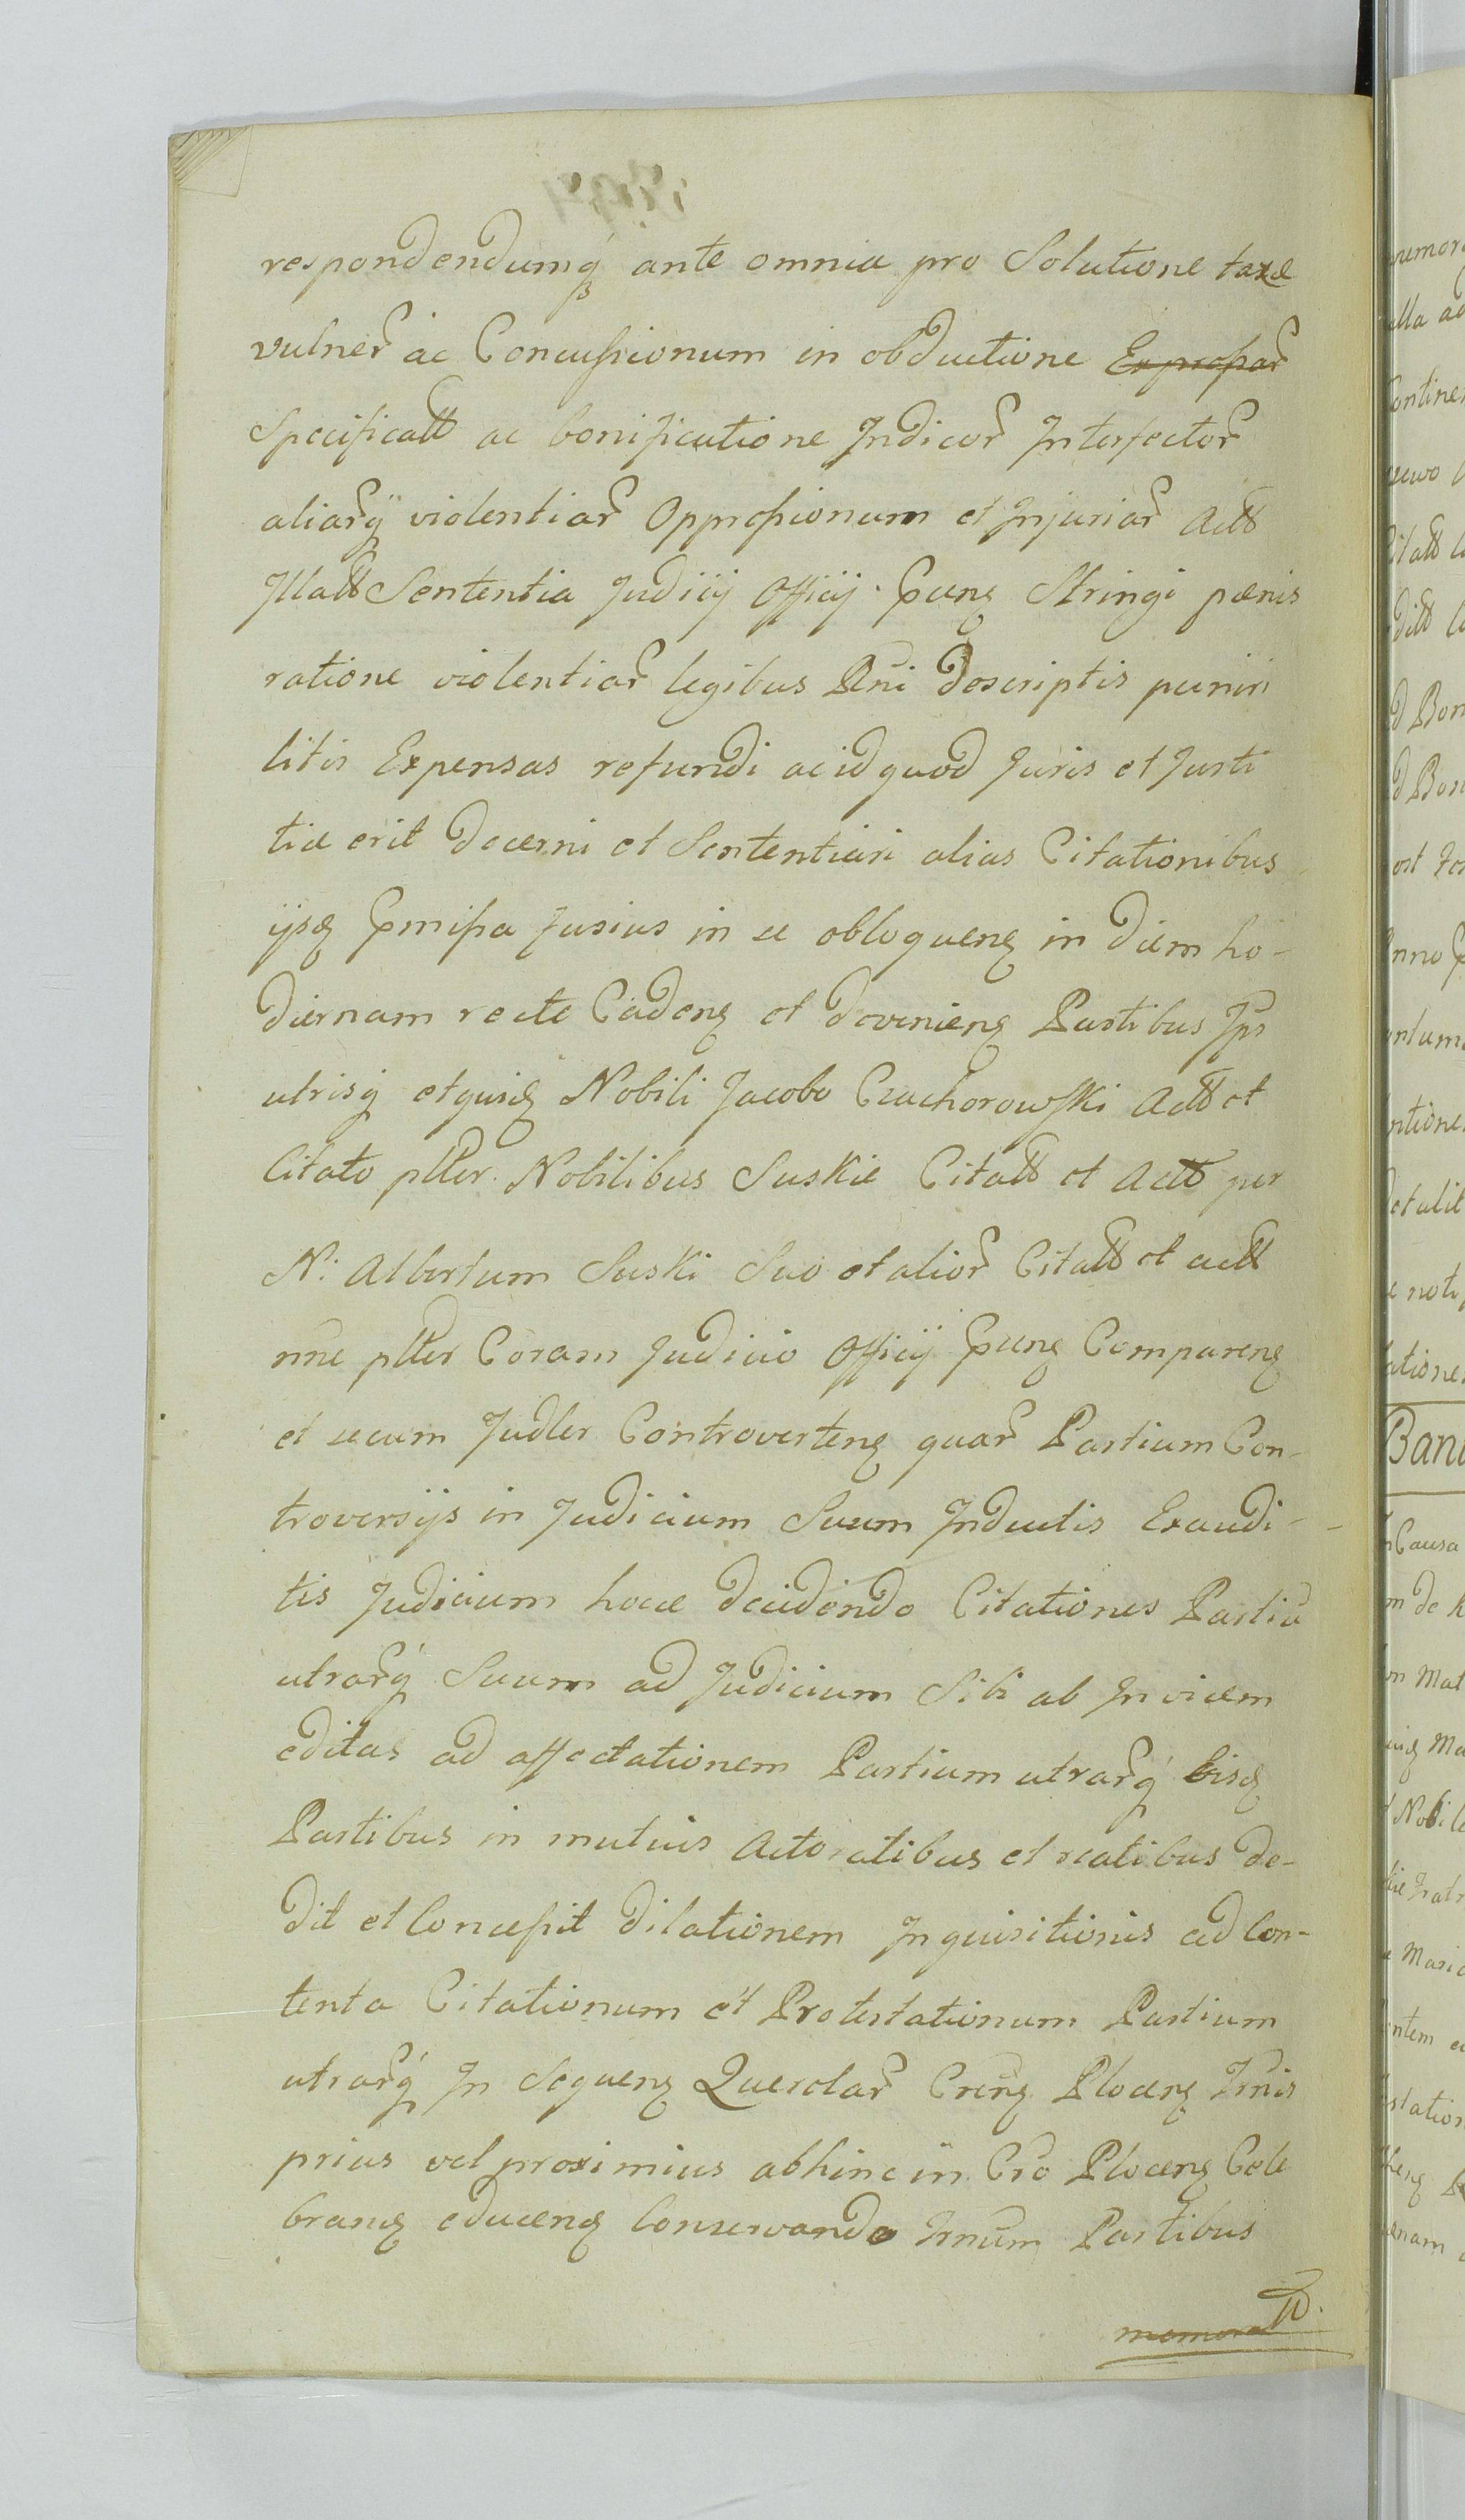 respondendumq́ ante omnia pro Solutione taxæ
vulner̃ ac Concussionum in obductione Expressar̃
Specificatt ac bonificatione Indicor̃ Interfector̃
aliarq́ violentiar̃ Oppressionum et Injuriar̃ Actt
Illatt Sententia Judicij Officij Stringi pænis
ratione violentiar̃ legibus Rñi descriptis puniri
litis Expensas refundi ac id quod Juris et Justi
tiæ erit decerni et Sententiari alias Citationibus
ijsq fusius in se obloqueng in diem ho-
diernam recte Cadeng et devenieng Partibus Ips
utrisq́ Nobili Jacobo Czachorowski Actt et
Citato pltter. Nobilibus Suskie Citatt et Actt per
N: Albertum Suski Suo et alior̃ Citatt et actt
nñe pltter Coram Judicio Officij Compareng
et secum Judler Controverteng quar̃ Partium Con-
troversijs in Judicium Suum Inductis Exaudi-
tis Judicium hocce decidendo Citationes Partiũ
utrarq́ Suum ad Judicium Sibi ab Invicem
editas ad affectationem Partium utrarq́ Eisq
Partibus in mutuis Actoratibus et reatibus de-
dit et Concessit dilationem Inquisitionis ad Con-
tenta Citationum et Protestationum Partium
utrarq́ In Sequeng Querelar̃ Cren̄g Ploceng Trnis
prius vel proximius abhinc in Cro Ploceng Cele
brang educeng Conservando Trnum Partibus
memoratt.